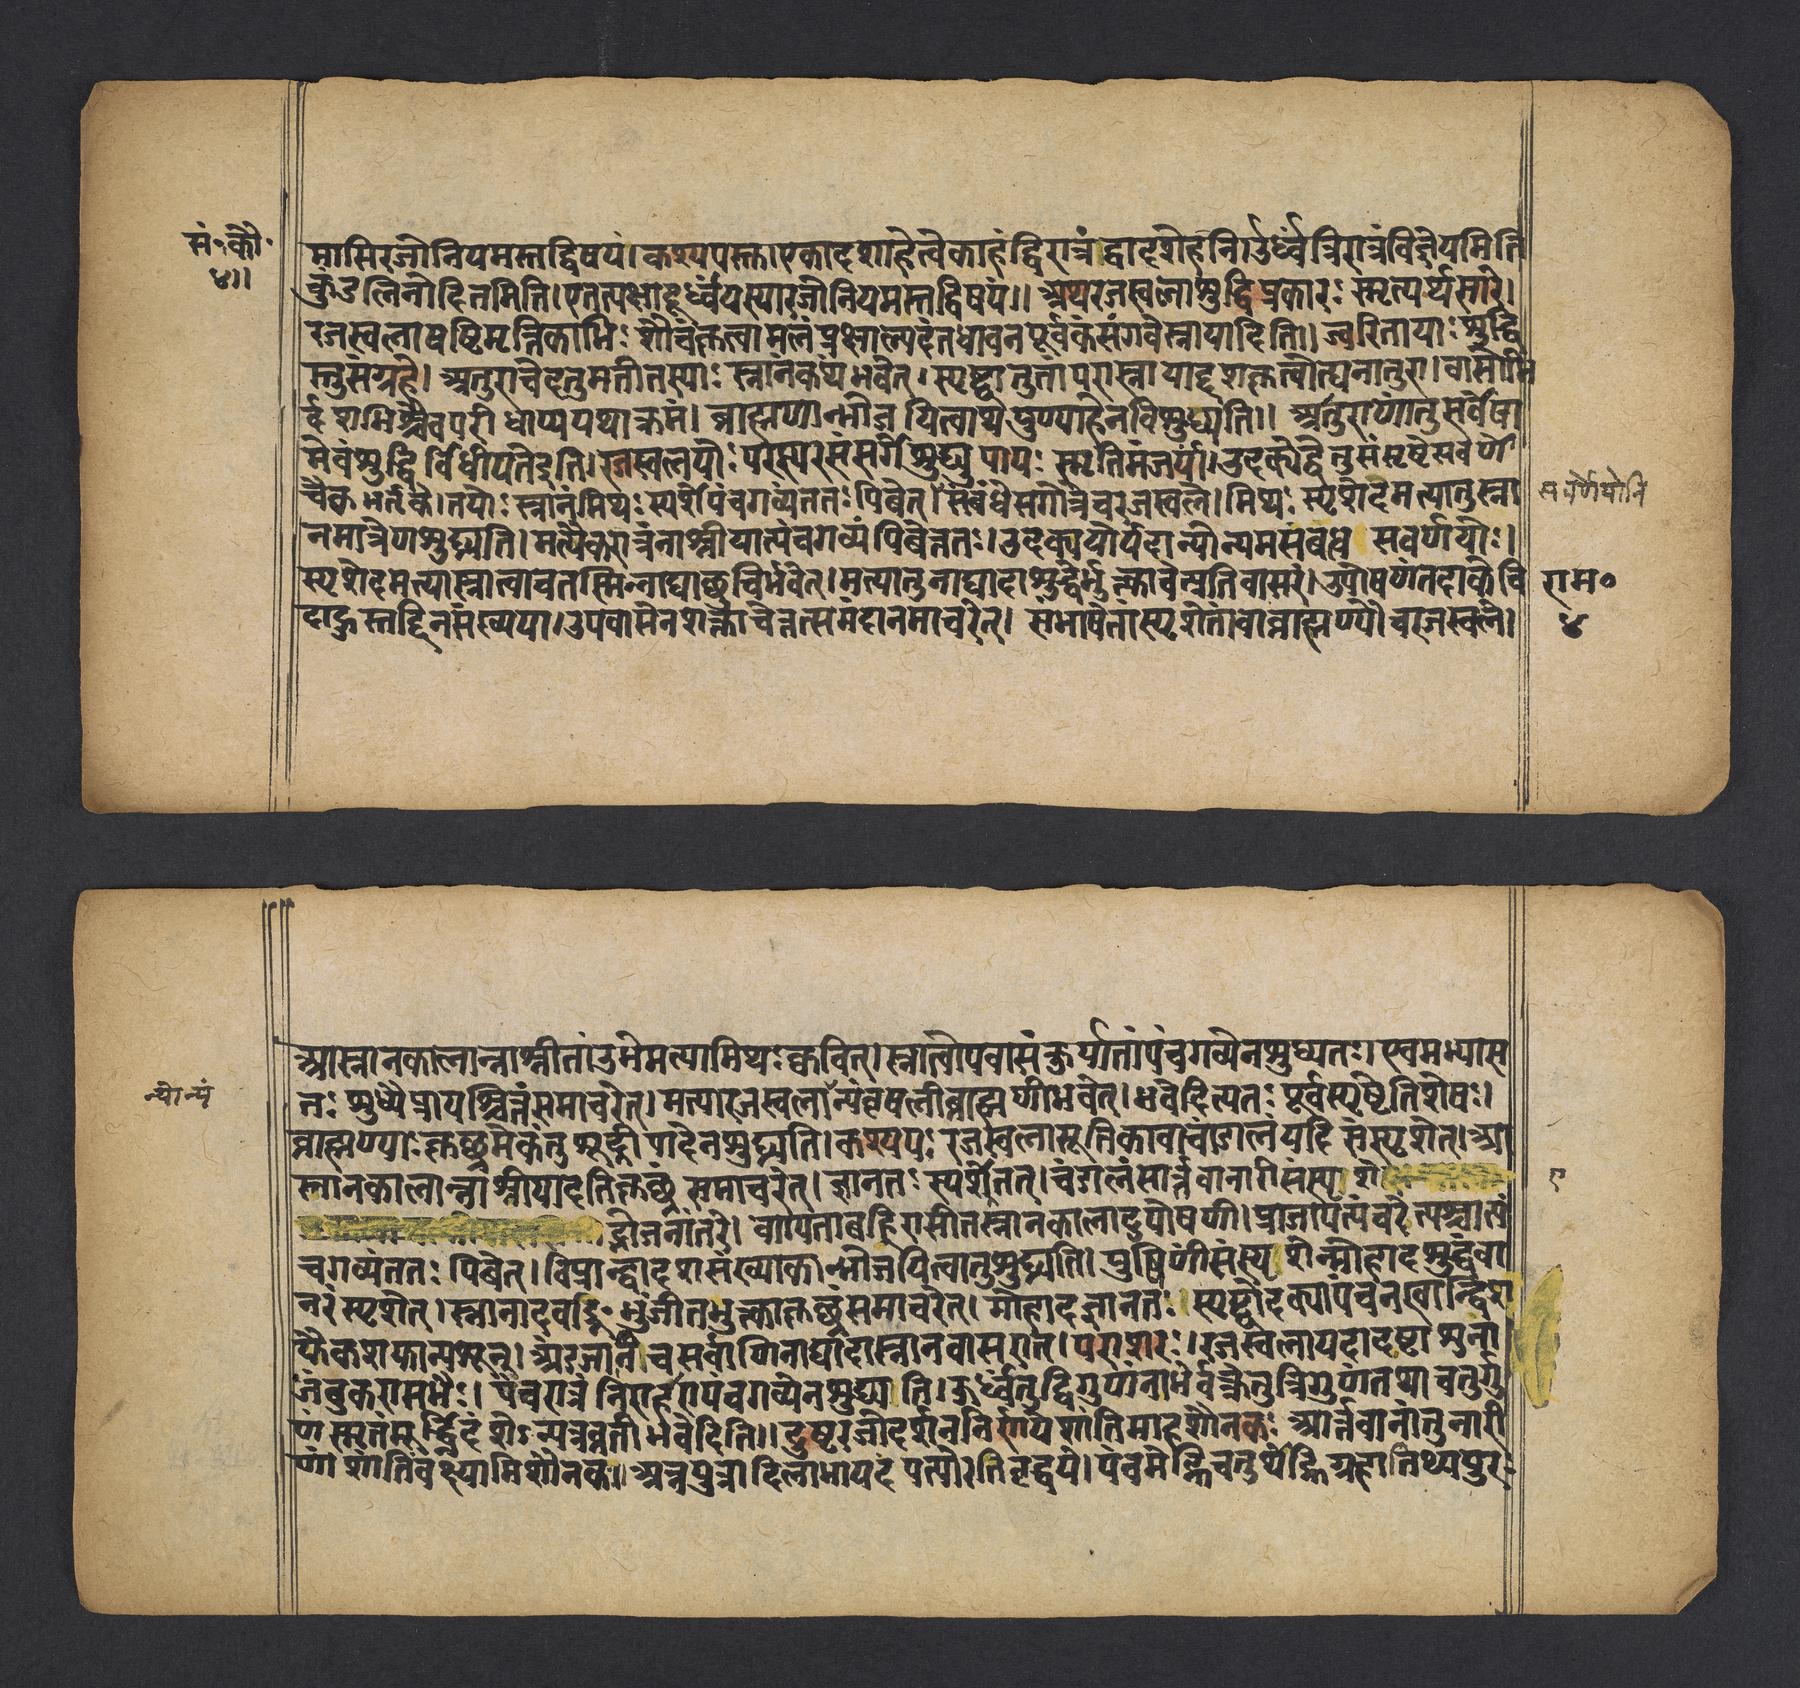 सं॰कौ॰
४॥
मासिरजोनियमस्तद्विषयं।कश्यपस्त्का।एकादशाहेत्वेकाहंद्विरात्रं द्वादशेहनि।उर्ध्वंत्रिरात्रंविज्ञेयमिति
कुंडलिनोदितमिति।एतत्पक्षादूर्ध्वंयस्यारजोनियमस्तद्विषयं॥अथरजस्वलाशुद्धिप्रकारः स्मृत्यर्थसारे।
रजस्वलाषष्टिमृत्तिकाभिः शौचंकृत्वामलंप्रक्षाल्यदंतधावनपूर्वकंसंगवेस्नायादिति॥ज्वरितायाः शुद्धि
स्तुसंग्रहे।अतुराचेदृतुमतीतस्याः स्नानंकथंभवेत्।स्पृष्ट्वातुतांपरास्नायाद्दशकृत्वोत्घनातुरा।वासोभि
र्दशभिश्चैवपरीधाप्ययथाक्रमं।ब्राह्मणान्भोजयित्वाथपुण्याहेनविशुध्यति॥अतुराणांतुसर्वेषा
मेवंशुद्धिर्विधीयतेइति।रजस्वलयोः परस्परसंसर्गेशुद्ध्युपायः स्मृतिमंजर्यां।उदक्येद्वेतुसंसृष्टेसवर्णे
चैकभर्तृके।तयोः स्नानंमिथः स्पर्शेपंचगव्यंततः पिबेत्।संबंधेसगोत्रेचरजस्वले।मिथः स्पृशेदमत्यातुस्ना
सवर्णेयोनि
नमात्रेणशुध्यति।मत्यैकरात्रंनाश्नीयात्पंचगव्यंपिबेत्ततः।उदक्ययोर्यदान्योन्यमसंबंधे सवर्णयोः।
स्पृशेदमत्यास्नात्वाचतस्मिन्नाद्याच्छुचिर्भवेत्।मत्यातुनाद्यादाशुद्धेर्भुत्काचेत्प्रतिवासरं।उपोषणंतदाकेचि
राम॰
दाहुस्तद्दिनसंख्यया।उपवासेनशक्ताचेत्तत्समंदानमाचरेत्।संभाषेतांस्पृशेतांवाब्राह्मण्यौचरजस्वले।
४
आस्नानकालान्नाश्नीतांउभेमत्यामिथः क्वचित्।स्नात्वोपवासंकुर्यातांपंचगव्येनशुध्यतः।एवमभ्यास
न्योन्यं
तः शुध्यैप्रायश्चित्तंसमाचरेत्।मत्यारजस्वलान्यंवृषलीब्राह्मणीभवेत्।भवेदित्यतः पूर्वंस्पृष्टेतिशेषः।
ब्राह्मण्याः कृच्छ्रमेकंतुशूद्रीपादेनशुध्यति।कश्यपः रजस्वलासूतिकावाचांडालंयदि संस्पृशेत्।आ
स्नानकालान्नाश्नीयादतिकृच्छ्रंसमाचरेत्।ज्ञानतः स्पर्शेतत्।चंडालंसार्त्तवानारीसंस्पृशे
ए
द्भोजनांतरे।वाग्यताबहिरासीतस्नानकालादुपोषणी।प्राजापत्यंचरेत्पश्चात्पं
चगव्यंततः पिबेत्।विप्रान्द्वादशसंख्याकान्भोजयित्वातुशुध्यति।पुष्पिणीसंस्पृशेन्मोहादशुद्धंवा
नरंस्पृशेत्।स्नानादवद्भिः भुंजीतभुत्काकृच्छ्रंसमाचरेत्।मोहादज्ञानतः स्पृष्टोदक्यापंचनखान्द्विश
फैकशफान्पशून्।अंडजानिचसर्वाणिनाद्यादास्नानवासरात्।पराशरः।रजस्वलायदादष्टाशुना
जंबुकरासभैः।पंचरात्रंनिराहारापंचगव्येनशुध्यति।ऊर्ध्वंतुद्विगुणंनाभेर्वक्त्रेतुत्रिगुणंतथाचतुर्गु
णंस्मृतंमूर्द्ध्निदंशेऽन्यत्रव्रतीभवेदिति॥दुष्टरजोदर्शननिर्णायशांतिमाहशौनकः आर्त्तवानांतुनारी
णांशांतिंवक्ष्यामिशौनक॥अन्नपुत्रादिलाभायदंपत्योरतिवृद्धये।पंचमेह्निचतुर्थेह्निग्रहातिथ्यपुरः